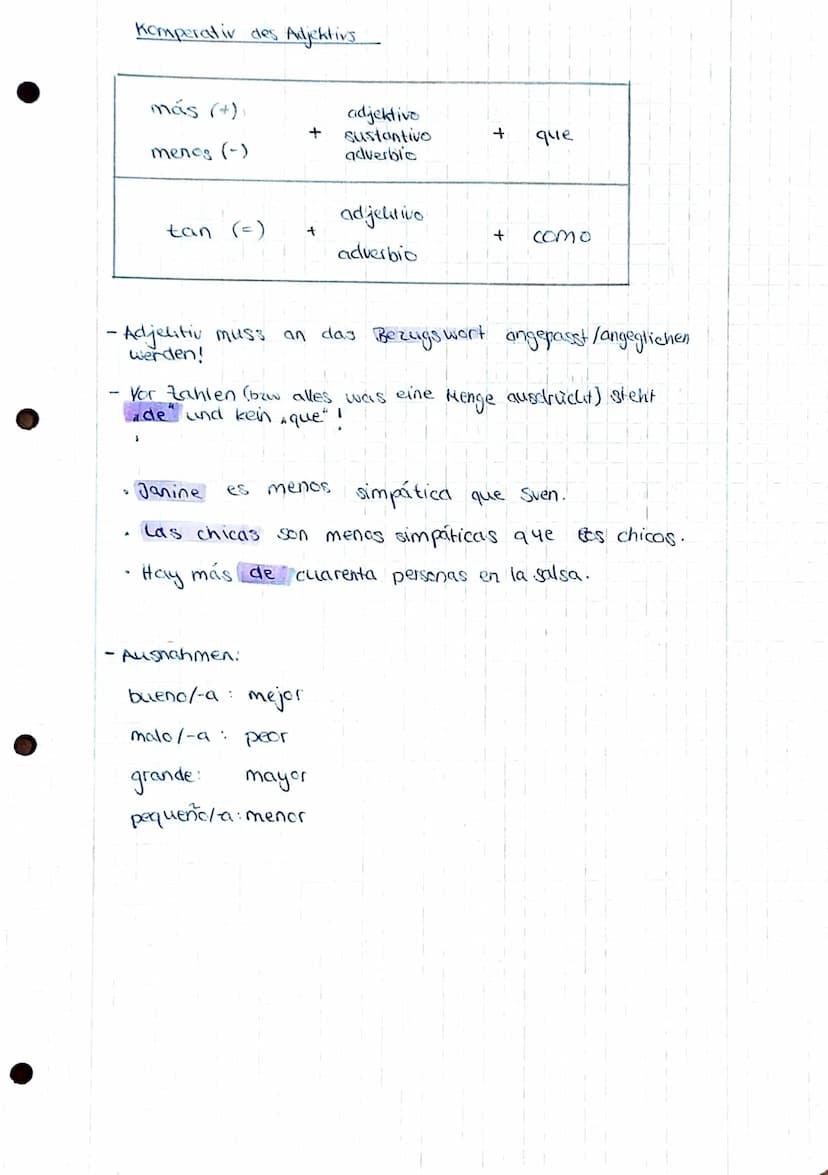 Komperativ des Adjektivs
más (+)
menos (-)
+
adjektivo
sustantivo
adverbio
+ que
tan (=) +
adjektivo
adverbio
+ como
- Adjektiv muss an das Bezugswort angepasst/angeglichen
werden!
- Vor Zahlen (bzw alles was eine Menge ausdrückt) steht
„de" und kein „que"!
• Janine es menos simpática que Sven.
• Las chicas son menos simpáticas que los chicos.
• Hay más de cuarenta personas en la salsa.
- Ausnahmen:
bueno/-a : mejor
malo/-a : peor
grande: mayor
pequeño/-a: menor